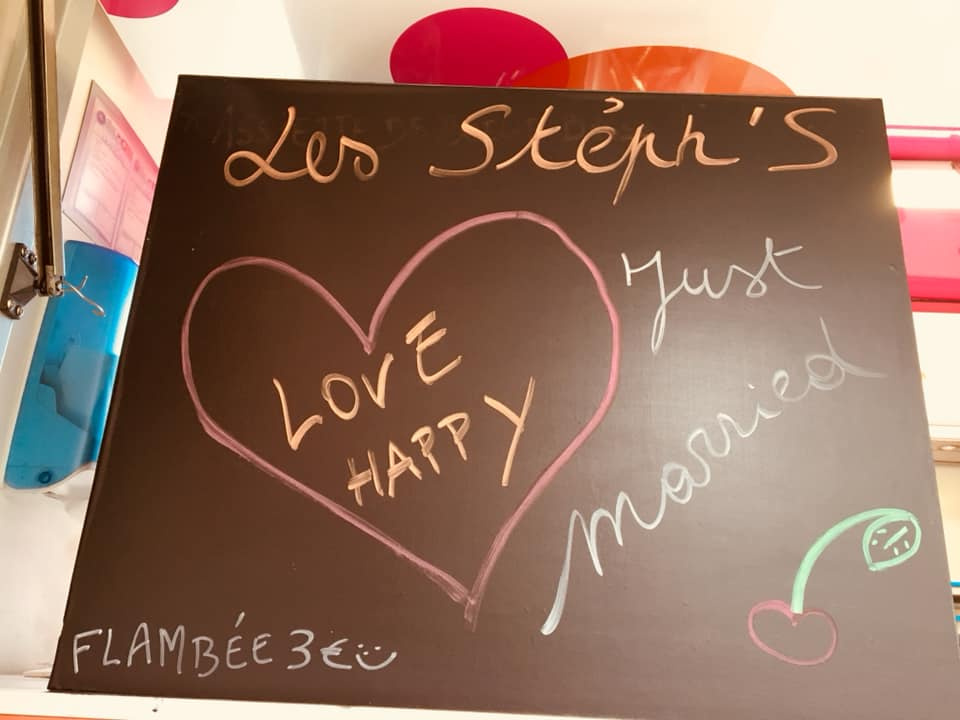 Les Stéph'S
Just
married
LOVE
HAPPY
FLAMBÉE 3€